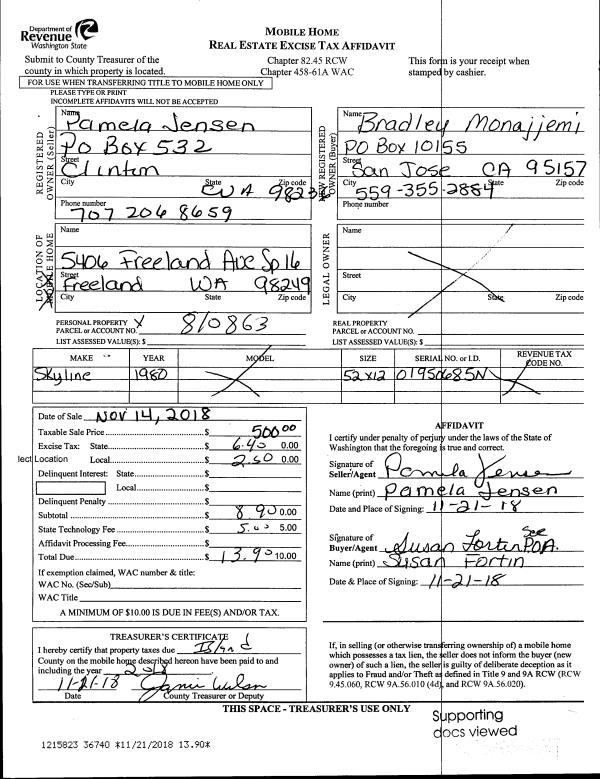 Department of
Revenue
Washington State
MOBILE HOME
REAL ESTATE EXCISE TAX AFFIDAVIT
Submit to County Treasurer of the
county in which property is located.
Chapter 82.45 RCW
Chapter 458-61A WAC
This form is your receipt when
stamped by cashier.
FOR USE WHEN TRANSFERRING TITLE TO MOBILE HOME ONLY
PLEASE TYPE OR PRINT
INCOMPLETE AFFIDAVITS WILL NOT BE ACCEPTED
REGISTERED
OWNER (Seller)
Name
Pamela Jensen
PO Box 532
Street
Clinton
City State Zip code
WA 98236
Phone number
707 206 8659
NEW REGISTERED
OWNER (Buyer)
Name
Bradley Monajjemi
PO Box 10155
Street
San Jose CA 95157
City State Zip code
559-355-2884
Phone number
LOCATION OF
MOBILE HOME
Name
5406 Freeland Ave Sp 16
Street
Freeland WA 98249
City State Zip code
LEGAL OWNER
Name
Street
City State Zip code
PERSONAL PROPERTY
PARCEL or ACCOUNT NO.
X 810863
LIST ASSESSED VALUE(S): $
REAL PROPERTY
PARCEL or ACCOUNT NO.
LIST ASSESSED VALUE(S): $
MAKE YEAR MODEL SIZE SERIAL NO. or I.D. REVENUE TAX CODE NO.
Skyline 1980 52x12 01950685N
Date of Sale Nov 14, 2018
Taxable Sale Price $ 500 00
Excise Tax: State $ 6.40 0.00
lect Location Local $ 2.50 0.00
Delinquent Interest: State $
Local $
Delinquent Penalty $
Subtotal $ 8.90 0.00
State Technology Fee $ 5.00 5.00
Affidavit Processing Fee $
Total Due $ 13.90 10.00
If exemption claimed, WAC number & title:
WAC No. (Sec/Sub)
WAC Title
A MINIMUM OF $10.00 IS DUE IN FEE(S) AND/OR TAX.
AFFIDAVIT
I certify under penalty of perjury under the laws of the State of
Washington that the foregoing is true and correct.
Signature of
Seller/Agent Pamela Jensen
Name (print) Pamela Jensen
Date and Place of Signing: 11-21-18
Signature of
Buyer/Agent Susan Fortin See POA.
Name (print) Susan Fortin
Date & Place of Signing: 11-21-18
TREASURER'S CERTIFICATE
I hereby certify that property taxes due Island
County on the mobile home described hereon have been paid to and
including the year 2018
11-21-18
Date County Treasurer or Deputy
If, in selling (or otherwise transferring ownership of) a mobile home
which possesses a tax lien, the seller does not inform the buyer (new
owner) of such a lien, the seller is guilty of deliberate deception as it
applies to Fraud and/or Theft as defined in Title 9 and 9A RCW (RCW
9.45.060, RCW 9A.56.010 (4d), and RCW 9A.56.020).
THIS SPACE - TREASURER'S USE ONLY
Supporting
docs viewed
1215823 36740 *11/21/2018 13.90*